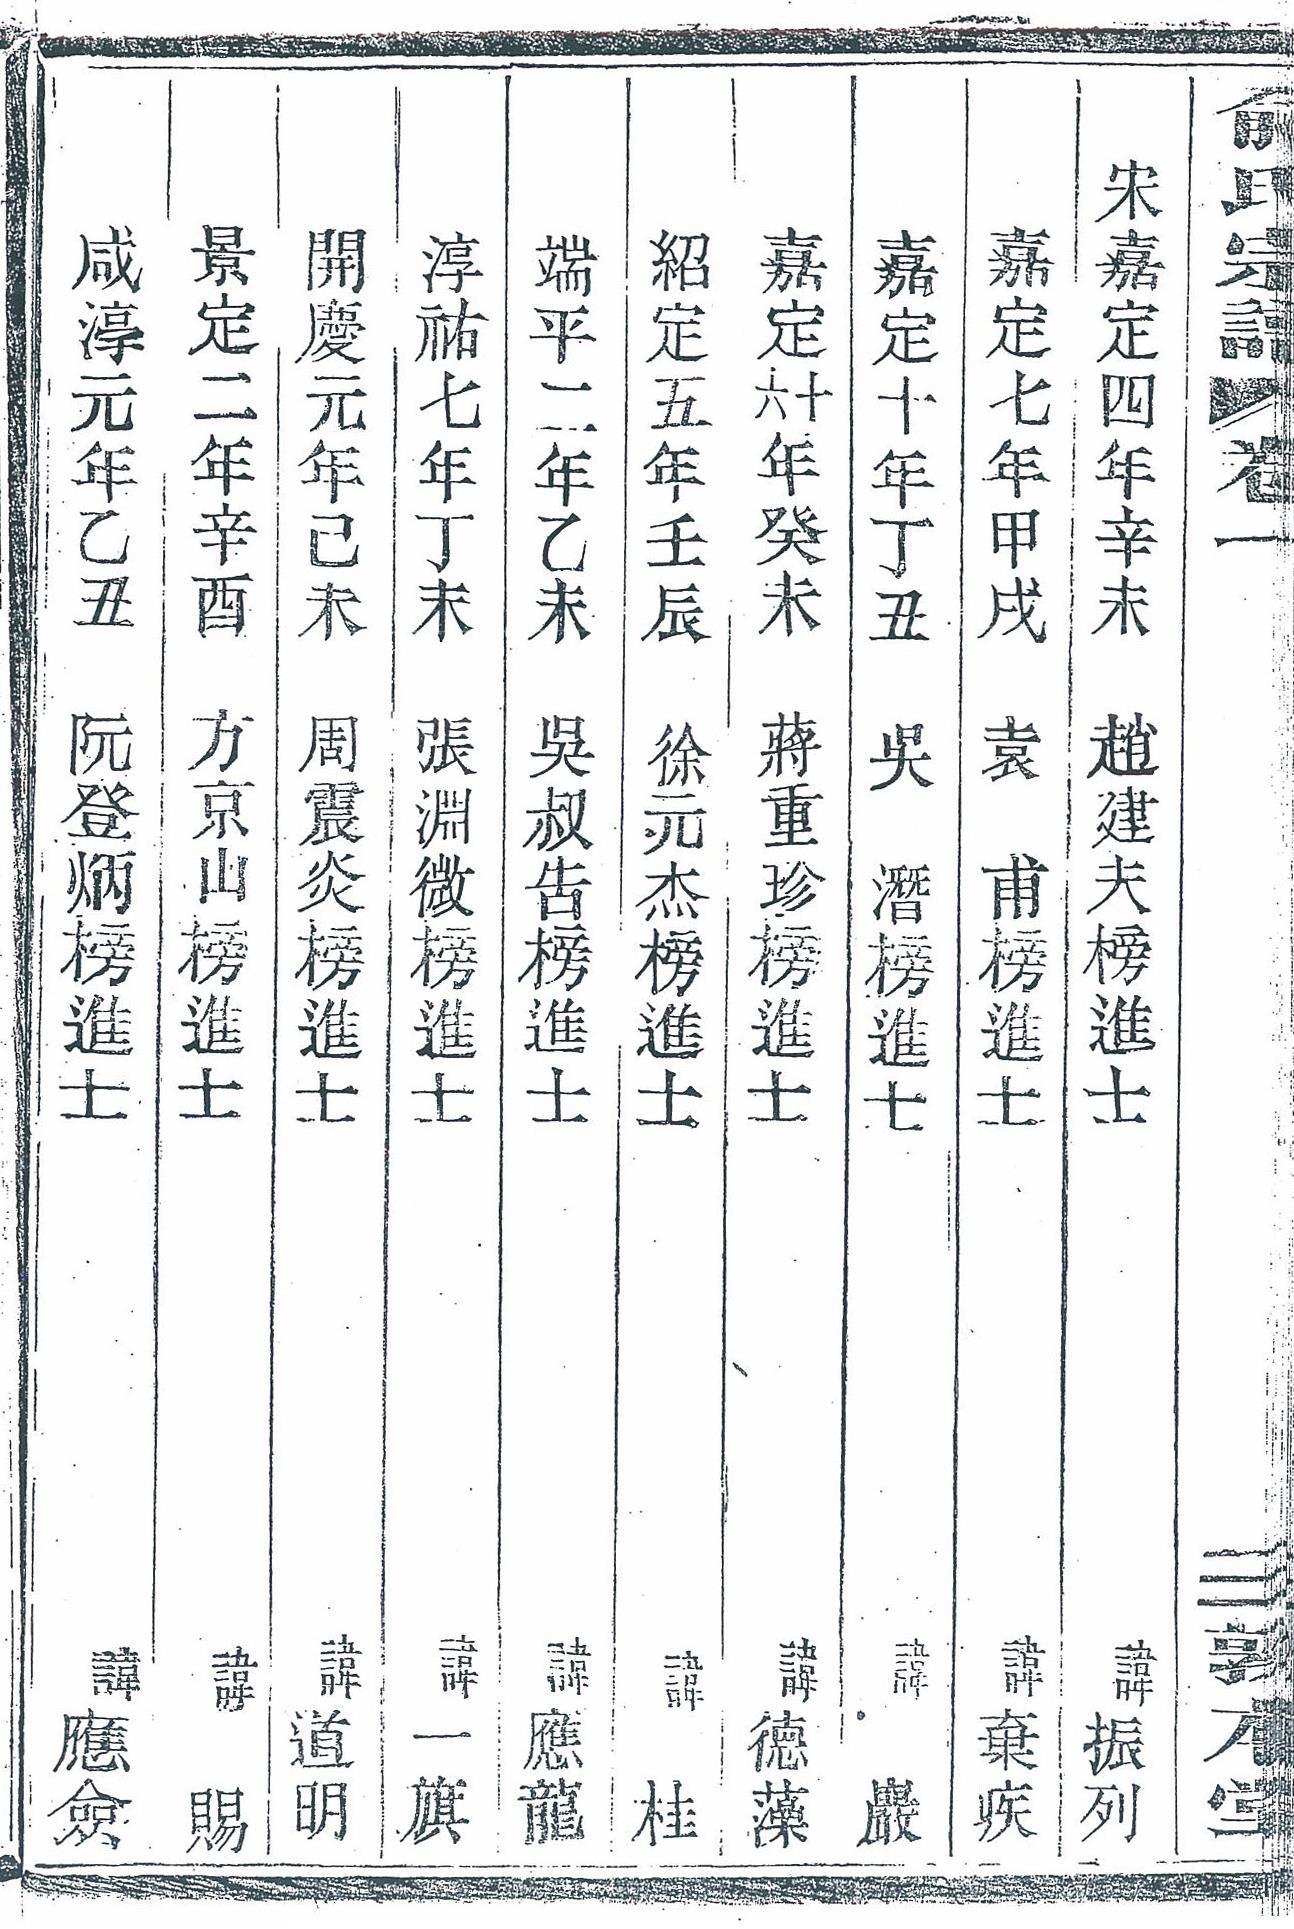 俞氏宗譜 卷一 三 敦本堂
宋嘉定四年辛未 趙建夫榜進士 諱振列
嘉定七年甲戌 袁甫榜進士 諱棄疾
嘉定十年丁丑 吳潛榜進士 諱巖
嘉定十六年癸未 蔣重珍榜進士 諱德藻
紹定五年壬辰 徐元杰榜進士 諱桂
端平二年乙未 吳叔告榜進士 諱應龍
淳祐七年丁未 張淵微榜進士 諱一旗
開慶元年己未 周震炎榜進士 諱道明
景定二年辛酉 方京山榜進士 諱賜
咸淳元年乙丑 阮登炳榜進士 諱應僉